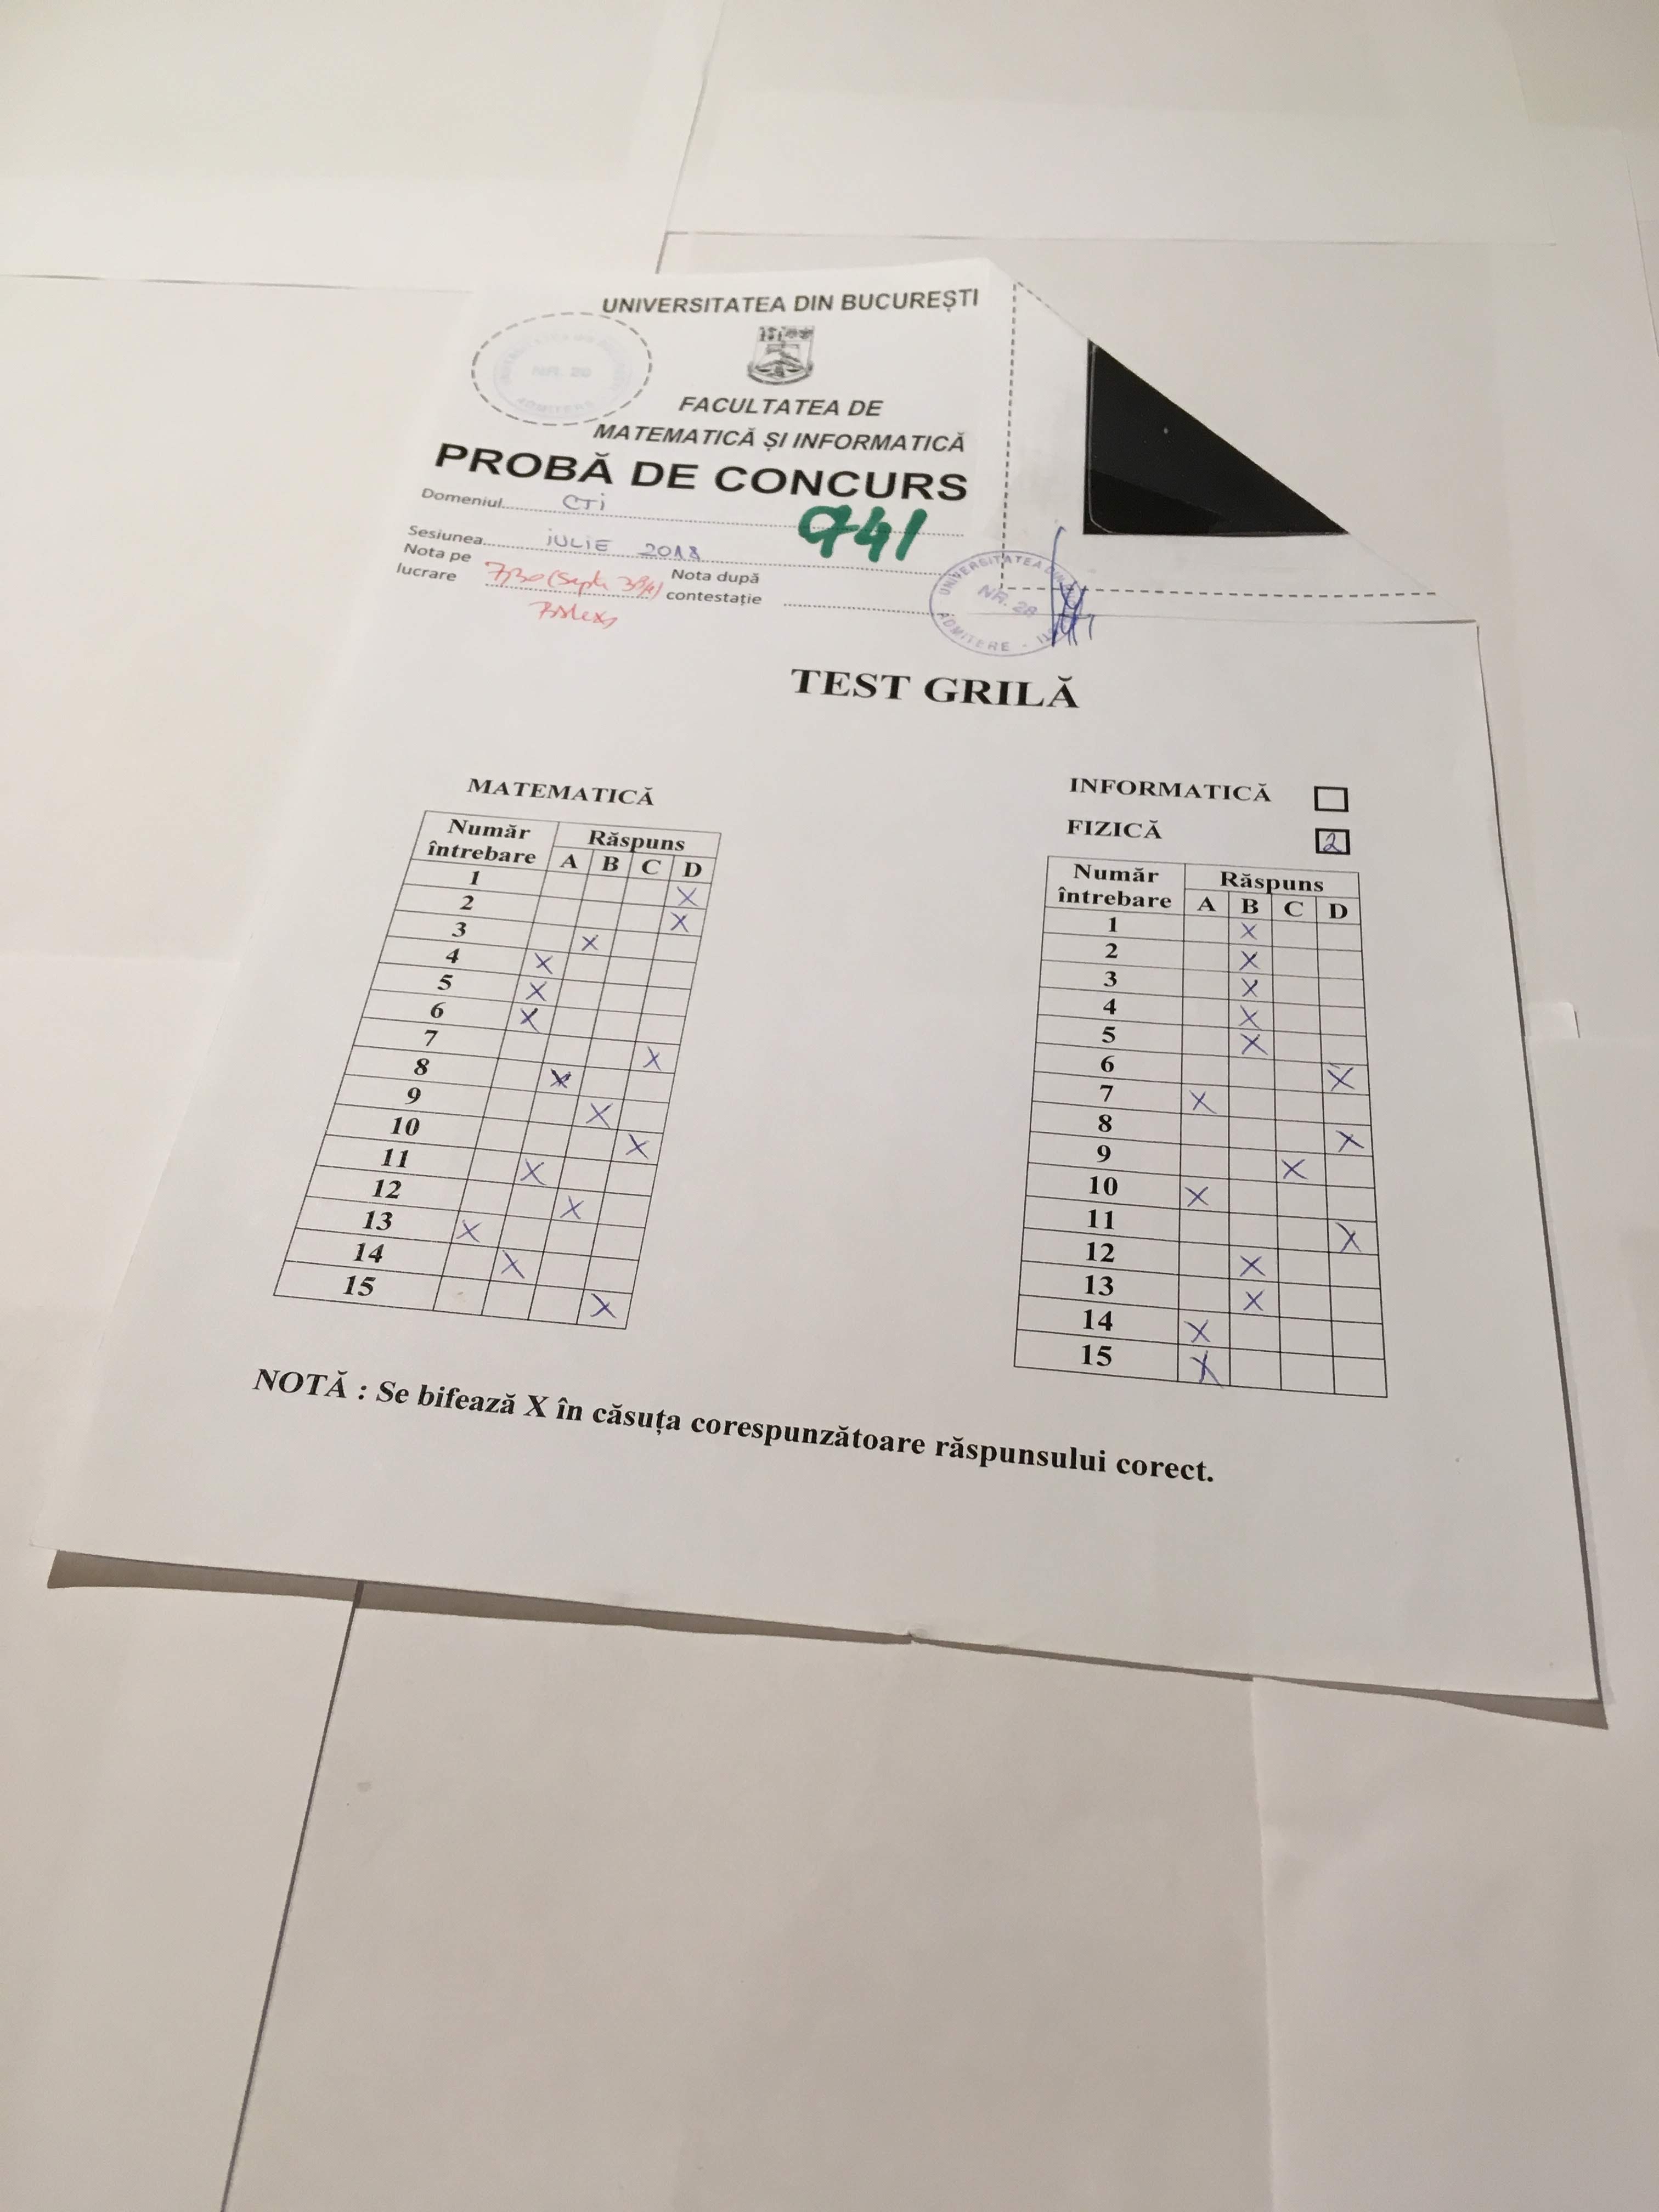 UNIVERSITATEA DIN BUCUREȘTI
FACULTATEA DE
MATEMATICĂ ȘI INFORMATICĂ
PROBĂ DE CONCURS
Domeniul CTI
941
Sesiunea IULIE 2018
Nota pe lucrare
Nota după contestație
NR. 28
ADMITERE
TEST GRILĂ
MATEMATICĂ
Număr întrebare Răspuns
A B C D
1 X
2 X
3 X
4 X
5 X
6 X
7 X
8 X
9 X
10 X
11 X
12 X
13 X
14 X
15 X
INFORMATICĂ
FIZICĂ 2
Număr întrebare Răspuns
A B C D
1 X
2 X
3 X
4 X
5 X
6 X
7 X
8 X
9 X
10 X
11 X
12 X
13 X
14 X
15 X
NOTĂ : Se bifează X în căsuța corespunzătoare răspunsului corect.